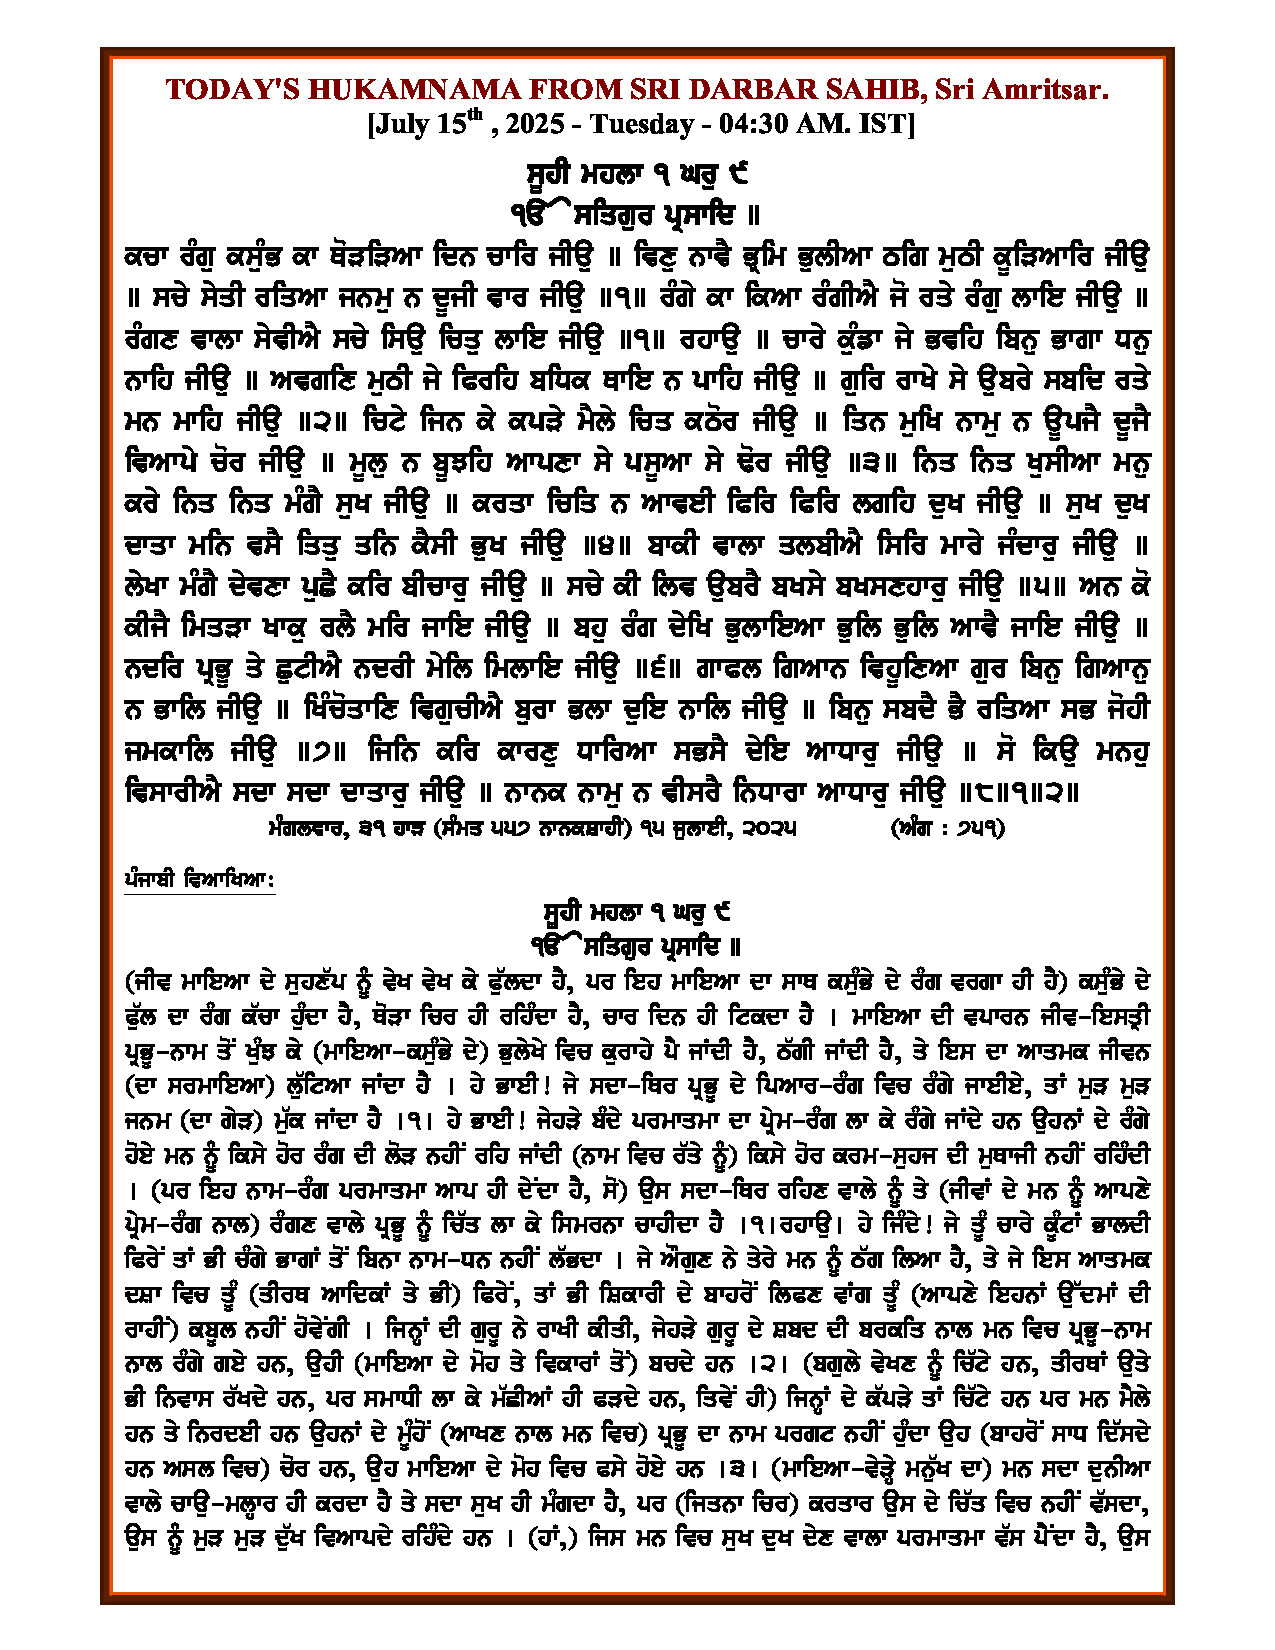 TODAY'S HUKAMNAMA FROM SRI DARBAR SAHIB, Sri Amritsar.
[July 15th , 2025 - Tuesday - 04:30 AM. IST]
ਸੂਹੀ ਮਹਲਾ ੧ ਘਰੁ ੯
ੴ ਸਤਿਗੁਰ ਪ੍ਰਸਾਦਿ ॥
ਕਚਾ ਰੰਗੁ ਕਸੁੰਭ ਕਾ ਥੋੜੜਿਆ ਦਿਨ ਚਾਰਿ ਜੀਉ ॥ ਵਿਣੁ ਨਾਵੈ ਭ੍ਰਮਿ ਭੁਲੀਆ ਠਗਿ ਮੁਠੀ ਕੂੜਿਆਰਿ ਜੀਉ
॥ ਸਚੇ ਸੇਤੀ ਰਤਿਆ ਜਨਮੁ ਨ ਦੂਜੀ ਵਾਰ ਜੀਉ ॥੧॥ ਰੰਗੇ ਕਾ ਕਿਆ ਰੰਗੀਐ ਜੋ ਰਤੇ ਰੰਗੁ ਲਾਇ ਜੀਉ ॥
ਰੰਗਣ ਵਾਲਾ ਸੇਵੀਐ ਸਚੇ ਸਿਉ ਚਿਤੁ ਲਾਇ ਜੀਉ ॥੧॥ ਰਹਾਉ ॥ ਚਾਰੇ ਕੁੰਡਾ ਜੇ ਭਵਹਿ ਬਿਨੁ ਭਾਗਾ ਧਨੁ
ਨਾਹਿ ਜੀਉ ॥ ਅਵਗਣਿ ਮੁਠੀ ਜੇ ਫਿਰਹਿ ਬਧਿਕ ਥਾਇ ਨ ਪਾਹਿ ਜੀਉ ॥ ਗੁਰਿ ਰਾਖੇ ਸੇ ਉਬਰੇ ਸਬਦਿ ਰਤੇ
ਮਨ ਮਾਹਿ ਜੀਉ ॥੨॥ ਚਿਟੇ ਜਿਨ ਕੇ ਕਪੜੇ ਮੈਲੇ ਚਿਤ ਕਠੋਰ ਜੀਉ ॥ ਤਿਨ ਮੁਖਿ ਨਾਮੁ ਨ ਊਪਜੈ ਦੂਜੈ
ਵਿਆਪੇ ਚੋਰ ਜੀਉ ॥ ਮੂਲੁ ਨ ਬੂਝਹਿ ਆਪਣਾ ਸੇ ਪਸੂਆ ਸੇ ਢੋਰ ਜੀਉ ॥੩॥ ਨਿਤ ਨਿਤ ਖੁਸੀਆ ਮਨੁ
ਕਰੇ ਨਿਤ ਨਿਤ ਮੰਗੈ ਸੁਖ ਜੀਉ ॥ ਕਰਤਾ ਚਿਤਿ ਨ ਆਵਈ ਫਿਰਿ ਫਿਰਿ ਲਗਹਿ ਦੁਖ ਜੀਉ ॥ ਸੁਖ ਦੁਖ
ਦਾਤਾ ਮਨਿ ਵਸੈ ਤਿਤੁ ਤਨਿ ਕੈਸੀ ਭੁਖ ਜੀਉ ॥੪॥ ਬਾਕੀ ਵਾਲਾ ਤਲਬੀਐ ਸਿਰਿ ਮਾਰੇ ਜੰਦਾਰੁ ਜੀਉ ॥
ਲੇਖਾ ਮੰਗੈ ਦੇਵਣਾ ਪੁਛੈ ਕਰਿ ਬੀਚਾਰੁ ਜੀਉ ॥ ਸਚੇ ਕੀ ਲਿਵ ਉਬਰੈ ਬਖਸੇ ਬਖਸਣਹਾਰੁ ਜੀਉ ॥੫॥ ਅਨ ਕੋ
ਕੀਜੈ ਮਿਤੜਾ ਖਾਕੁ ਰਲੈ ਮਰਿ ਜਾਇ ਜੀਉ ॥ ਬਹੁ ਰੰਗ ਦੇਖਿ ਭੁਲਾਇਆ ਭੁਲਿ ਭੁਲਿ ਆਵੈ ਜਾਇ ਜੀਉ ॥
ਨਦਰਿ ਪ੍ਰਭੂ ਤੇ ਛੁਟੀਐ ਨਦਰੀ ਮੇਲਿ ਮਿਲਾਇ ਜੀਉ ॥੬॥ ਗਾਫਲ ਗਿਆਨ ਵਿਹੂਣਿਆ ਗੁਰ ਬਿਨੁ ਗਿਆਨੁ
ਨ ਭਾਲਿ ਜੀਉ ॥ ਖਿੰਚੋਤਾਣਿ ਵਿਗੁਚੀਐ ਬੁਰਾ ਭਲਾ ਦੁਇ ਨਾਲਿ ਜੀਉ ॥ ਬਿਨੁ ਸਬਦੈ ਭੈ ਰਤਿਆ ਸਭ ਜੋਹੀ
ਜਮਕਾਲਿ ਜੀਉ ॥੭॥ ਜਿਨਿ ਕਰਿ ਕਾਰਣੁ ਧਾਰਿਆ ਸਭਸੈ ਦੇਇ ਆਧਾਰੁ ਜੀਉ ॥ ਸੋ ਕਿਉ ਮਨਹੁ
ਵਿਸਾਰੀਐ ਸਦਾ ਸਦਾ ਦਾਤਾਰੁ ਜੀਉ ॥ ਨਾਨਕ ਨਾਮੁ ਨ ਵੀਸਰੈ ਨਿਧਾਰਾ ਆਧਾਰੁ ਜੀਉ ॥੮॥੧॥੨॥
ਮੰਗਲਵਾਰ, ੩੧ ਹਾੜ (ਸੰਮਤ ੫੫੭ ਨਾਨਕਸ਼ਾਹੀ) ੧੫ ਜੁਲਾਈ, ੨੦੨੫ (ਅੰਗ : ੭੫੧)
ਪੰਜਾਬੀ ਵਿਆਖਿਆ:
ਸੂਹੀ ਮਹਲਾ ੧ ਘਰੁ ੯
ੴ ਸਤਿਗੁਰ ਪ੍ਰਸਾਦਿ ॥
(ਜੀਵ ਮਾਇਆ ਦੇ ਸੁਹਣੱਪ ਨੂੰ ਵੇਖ ਵੇਖ ਕੇ ਫੁੱਲਦਾ ਹੈ, ਪਰ ਇਹ ਮਾਇਆ ਦਾ ਸਾਥ ਕਸੁੰਭੇ ਦੇ ਰੰਗ ਵਰਗਾ ਹੀ ਹੈ) ਕਸੁੰਭੇ ਦੇ
ਫੁੱਲ ਦਾ ਰੰਗ ਕੱਚਾ ਹੁੰਦਾ ਹੈ, ਥੋੜਾ ਚਿਰ ਹੀ ਰਹਿੰਦਾ ਹੈ, ਚਾਰ ਦਿਨ ਹੀ ਟਿਕਦਾ ਹੈ । ਮਾਇਆ ਦੀ ਵਪਾਰਨ ਜੀਵ-ਇਸਤ੍ਰੀ
ਪ੍ਰਭੂ-ਨਾਮ ਤੋਂ ਖੁੰਝ ਕੇ (ਮਾਇਆ-ਕਸੁੰਭੇ ਦੇ) ਭੁਲੇਖੇ ਵਿਚ ਕੁਰਾਹੇ ਪੈ ਜਾਂਦੀ ਹੈ, ਠੱਗੀ ਜਾਂਦੀ ਹੈ, ਤੇ ਇਸ ਦਾ ਆਤਮਕ ਜੀਵਨ
(ਦਾ ਸਰਮਾਇਆ) ਲੁੱਟਿਆ ਜਾਂਦਾ ਹੈ । ਹੇ ਭਾਈ! ਜੇ ਸਦਾ-ਥਿਰ ਪ੍ਰਭੂ ਦੇ ਪਿਆਰ-ਰੰਗ ਵਿਚ ਰੰਗੇ ਜਾਈਏ, ਤਾਂ ਮੁੜ ਮੁੜ
ਜਨਮ (ਦਾ ਗੇੜ) ਮੁੱਕ ਜਾਂਦਾ ਹੈ ।੧। ਹੇ ਭਾਈ! ਜੇਹੜੇ ਬੰਦੇ ਪਰਮਾਤਮਾ ਦਾ ਪ੍ਰੇਮ-ਰੰਗ ਲਾ ਕੇ ਰੰਗੇ ਜਾਂਦੇ ਹਨ ਉਹਨਾਂ ਦੇ ਰੰਗੇ
ਹੋਏ ਮਨ ਨੂੰ ਕਿਸੇ ਹੋਰ ਰੰਗ ਦੀ ਲੋੜ ਨਹੀਂ ਰਹਿ ਜਾਂਦੀ (ਨਾਮ ਵਿਚ ਰੱਤੇ ਨੂੰ) ਕਿਸੇ ਹੋਰ ਕਰਮ-ਸੁਹਜ ਦੀ ਮੁਥਾਜੀ ਨਹੀਂ ਰਹਿੰਦੀ
। (ਪਰ ਇਹ ਨਾਮ-ਰੰਗ ਪਰਮਾਤਮਾ ਆਪ ਹੀ ਦੇਂਦਾ ਹੈ, ਸੋ) ਉਸ ਸਦਾ-ਥਿਰ ਰਹਿਣ ਵਾਲੇ ਨੂੰ ਤੇ (ਜੀਵਾਂ ਦੇ ਮਨ ਨੂੰ ਆਪਣੇ
ਪ੍ਰੇਮ-ਰੰਗ ਨਾਲ) ਰੰਗਣ ਵਾਲੇ ਪ੍ਰਭੂ ਨੂੰ ਚਿੱਤ ਲਾ ਕੇ ਸਿਮਰਨਾ ਚਾਹੀਦਾ ਹੈ ।੧।ਰਹਾਉ। ਹੇ ਜਿੰਦੇ! ਜੇ ਤੂੰ ਚਾਰੇ ਕੂੰਟਾਂ ਭਾਲਦੀ
ਫਿਰੇਂ ਤਾਂ ਭੀ ਚੰਗੇ ਭਾਗਾਂ ਤੋਂ ਬਿਨਾ ਨਾਮ-ਧਨ ਨਹੀਂ ਲੱਭਦਾ । ਜੇ ਔਗੁਣ ਨੇ ਤੇਰੇ ਮਨ ਨੂੰ ਠੱਗ ਲਿਆ ਹੈ, ਤੇ ਜੇ ਇਸ ਆਤਮਕ
ਦਸ਼ਾ ਵਿਚ ਤੂੰ (ਤੀਰਥ ਆਦਿਕਾਂ ਤੇ ਭੀ) ਫਿਰੇਂ, ਤਾਂ ਭੀ ਸ਼ਿਕਾਰੀ ਦੇ ਬਾਹਰੋਂ ਲਿਫਣ ਵਾਂਗ ਤੂੰ (ਆਪਣੇ ਇਹਨਾਂ ਉੱਦਮਾਂ ਦੀ
ਰਾਹੀਂ) ਕਬੂਲ ਨਹੀਂ ਹੋਵੇਂਗੀ । ਜਿਨ੍ਹਾਂ ਦੀ ਗੁਰੂ ਨੇ ਰਾਖੀ ਕੀਤੀ, ਜੇਹੜੇ ਗੁਰੂ ਦੇ ਸ਼ਬਦ ਦੀ ਬਰਕਤਿ ਨਾਲ ਮਨ ਵਿਚ ਪ੍ਰਭੂ-ਨਾਮ
ਨਾਲ ਰੰਗੇ ਗਏ ਹਨ, ਉਹੀ (ਮਾਇਆ ਦੇ ਮੋਹ ਤੇ ਵਿਕਾਰਾਂ ਤੋਂ) ਬਚਦੇ ਹਨ ।੨। (ਬਗੁਲੇ ਵੇਖਣ ਨੂੰ ਚਿੱਟੇ ਹਨ, ਤੀਰਥਾਂ ਉਤੇ
ਭੀ ਨਿਵਾਸ ਰੱਖਦੇ ਹਨ, ਪਰ ਸਮਾਧੀ ਲਾ ਕੇ ਮੱਛੀਆਂ ਹੀ ਫੜਦੇ ਹਨ, ਤਿਵੇਂ ਹੀ) ਜਿਨ੍ਹਾਂ ਦੇ ਕੱਪੜੇ ਤਾਂ ਚਿੱਟੇ ਹਨ ਪਰ ਮਨ ਮੈਲੇ
ਹਨ ਤੇ ਨਿਰਦਈ ਹਨ ਉਹਨਾਂ ਦੇ ਮੂੰਹੋਂ (ਆਖਣ ਨਾਲ ਮਨ ਵਿਚ) ਪ੍ਰਭੂ ਦਾ ਨਾਮ ਪਰਗਟ ਨਹੀਂ ਹੁੰਦਾ ਉਹ (ਬਾਹਰੋਂ ਸਾਧ ਦਿੱਸਦੇ
ਹਨ ਅਸਲ ਵਿਚ) ਚੋਰ ਹਨ, ਉਹ ਮਾਇਆ ਦੇ ਮੋਹ ਵਿਚ ਫਸੇ ਹੋਏ ਹਨ ।੩। (ਮਾਇਆ-ਵੇੜ੍ਹੇ ਮਨੁੱਖ ਦਾ) ਮਨ ਸਦਾ ਦੁਨੀਆ
ਵਾਲੇ ਚਾਉ-ਮਲ੍ਹਾਰ ਹੀ ਕਰਦਾ ਹੈ ਤੇ ਸਦਾ ਸੁਖ ਹੀ ਮੰਗਦਾ ਹੈ, ਪਰ (ਜਿਤਨਾ ਚਿਰ) ਕਰਤਾਰ ਉਸ ਦੇ ਚਿੱਤ ਵਿਚ ਨਹੀਂ ਵੱਸਦਾ,
ਉਸ ਨੂੰ ਮੁੜ ਮੁੜ ਦੁੱਖ ਵਿਆਪਦੇ ਰਹਿੰਦੇ ਹਨ । (ਹਾਂ,) ਜਿਸ ਮਨ ਵਿਚ ਸੁਖ ਦੁਖ ਦੇਣ ਵਾਲਾ ਪਰਮਾਤਮਾ ਵੱਸ ਪੈਂਦਾ ਹੈ, ਉਸ